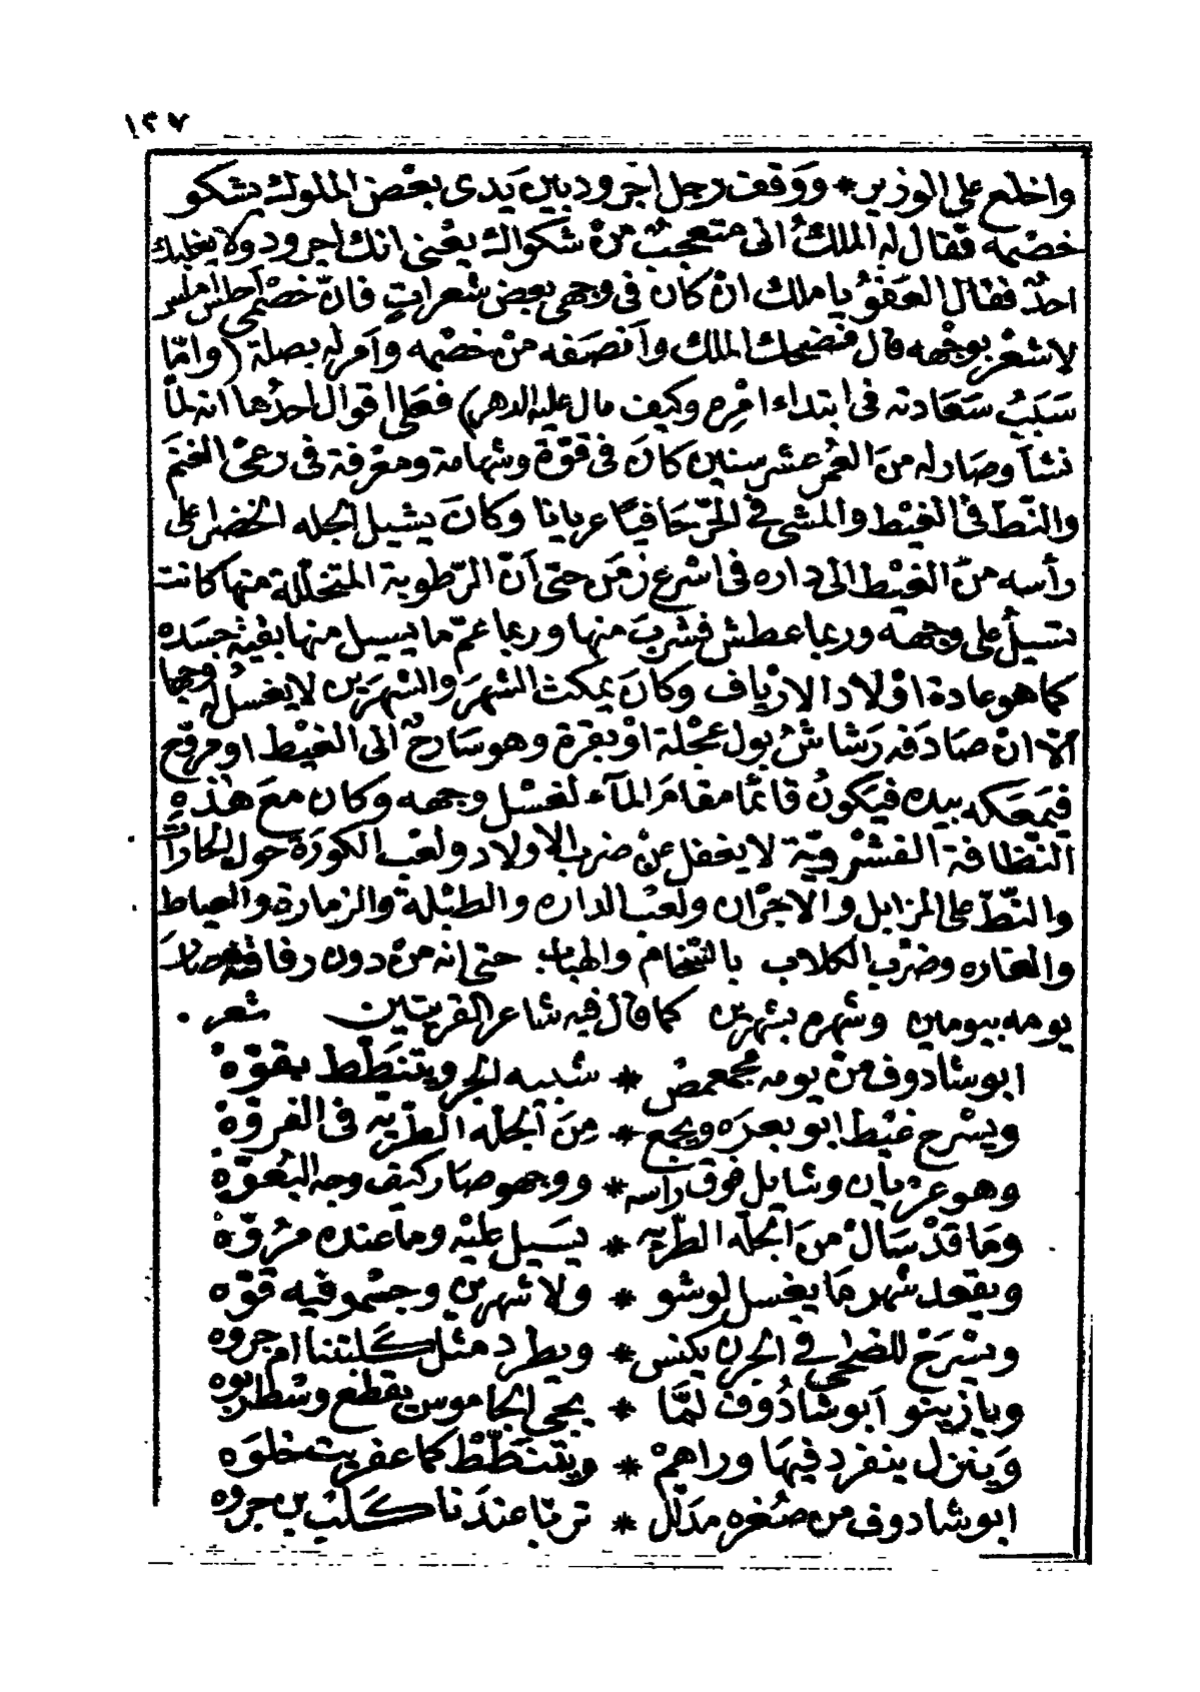 ١٣٧
واخلع على الوزير * ووقف رجل اجرود بين يدى بعض الملوك يشكو
خصمه فقال له الملك انى متعجب من شكواك يعنى انك اجرود ولا يغلبك
احد فقال العفو يا ملك ان كان فى وجهى بعض شعرات فان خصمى اطلس املس
لا شعر بوجهه قال فضحك الملك وأنصفه من خصمه وأمر له بصلة (وامّا
سبب سعادته فى ابتداء امره وكيف مال عليه الدهر) فعلى اقوال احدها انه لما
نشأ وصار له من العمر عشر سنين كان فى قوّة وشهامة ومعرفة فى رعى الغنم
والنّط فى الغيط والمشى فى الحرّ حافيًا عريانا وكان يشيل الجله الخضرا على
رأسه من الغيط الى داره فى اسرع زمن حتى أنّ الرّطوبة المتحللة منها كانت
تسيل على وجهه وربما عطش فشرب منها وربما عمّ ما يسيل منها بقية جسده
كما هو عادة اولاد الارياف وكان يمكث الشهر والشهرين لا يغسل له وجها
الّا ان صادفه رشاش بول عجلة او بقرة وهو سارح الى الغيط او مروّح
فيمعكه بيده فيكون قائما مقام المآء لغسل وجهه وكان مع هٰذه
النظافة القشرويّة لا يغفل عن ضرب الاولاد ولعب الكورة حول الحارات
والنّطّ على المزابل والاجران ولعب الداره والطبلة والزمارة والعياط
والعتاره وضرب الكلاب بالتخام والهباب حتى انه من دون رفاقته صار
يومه بيومين وشهره بشهرين كما قال فيه شاعر القريتين شعر
ابو شادوف من يومه مجمعص * شبيه الجرو يتنطّط بقوّة
ويسرح غيط ابو بعره ويجمع * من الجلّه الطّريّه فى الفروّة
وهو عريان وشايل فوق راسه * ووجهو صار كيف وجه البعوّة
وما قد سال من الجلّه الطّريه * يسيل عليه وما عنده مروّة
ويقعد شهر ما يغسل لوشو * ولا شهرين وجسمو فيه قوّه
ويسرح للضحى فى الجرن يكنس * ويطرد مثل كلبتنا ام جروه
ويا زينو أبو شادوف لمّا * يجى الجاموس يقطع وسط ربوه
وينزل ينفرد فيها وراهم * ويتنطّط كما عفريت خلوه
ابو شادوف من صغره مدلّل * تربّا عندنا كلب بن جروه